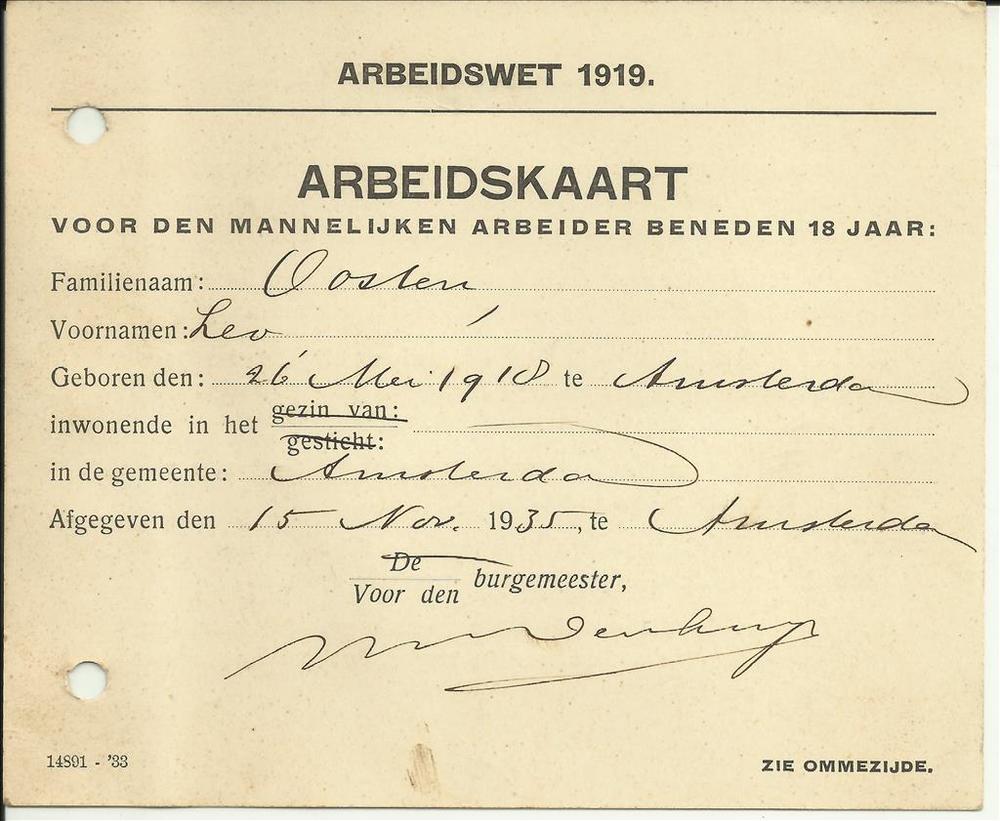 ARBEIDSWET 1919.
ARBEIDSKAART
VOOR DEN MANNELIJKEN ARBEIDER BENEDEN 18 JAAR:
Familienaam: Oosten
Voornamen: Leo
Geboren den: 26 Mei 1918 te Amsterdam
inwonende in het gezin van:
gesticht:
in de gemeente: Amsterdam
Afgegeven den 15 Nov. 1935, te Amsterdam
De
Voor den burgemeester,
14891 - '33
ZIE OMMEZIJDE.